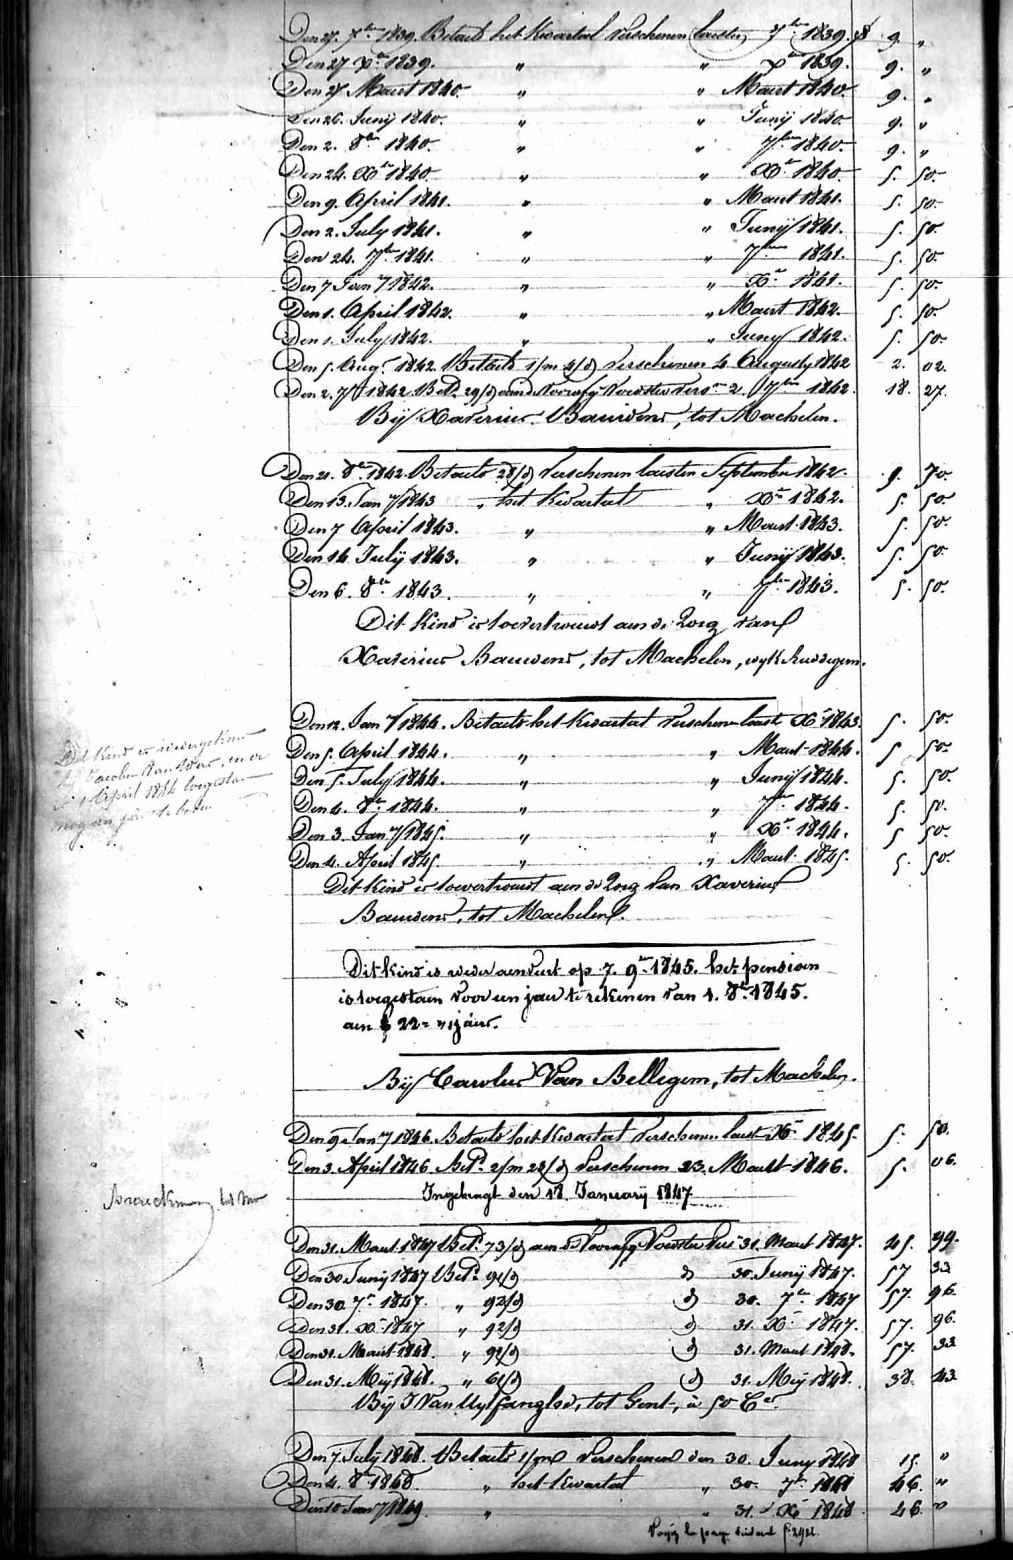 Den 27. 7ber 1839. Betaelt het Kwartael Verschenen laesten 7ber 1839. 9. "
Den 27 Xer 1839. " " Xer 1839. 9. "
Den 27. Maert 1840. " " Maert 1840. 9. "
Den 26. Junij 1840. " " Junij 1840. 9. "
Den 2. 8ber 1840. " " 7ber 1840. 9. "
Den 24. Xer 1840. " " Xer 1840. 5. 50.
Den 9. April 1841. " " Maert 1841. 5. 50.
Den 2. July 1841. " " Junij 1841. 5. 50.
Den 24. 7ber 1841. " " 7ber 1841. 5. 50.
Den 7 Jany 1842. " " Xer 1841. 5. 50.
Den 1. April 1842. " " Maert 1842. 5. 50.
Den 1. July 1842. " " Juny 1842. 5. 50.
Den 5. Aug. 1842. Betaelt 1/m 4/d Verschenen 4 Augusty 1842 2. 02.
Den 2. 7ber 1842. Bet. 29/d aen de Voorafg Voedster vers. 2. 7ber 1842. 18. 27.
Bij Xaverius Bauwens, tot Machelen.
Den 21. 8ber 1842. Betaelt 28/d Verschenen laesten September 1842. 9. 70.
Den 13. Jany 1843 " het Kwartael " Xer 1842. 5. 50.
Den 7 April 1843. " " Maert 1843. 5. 50.
Den 14 Julij 1843. " " Junij 1843. 5. 50.
Den 6. 8ber 1843. " " 7ber 1843. 5. 50.
Dit Kind is toevertrouwt aen de Zorg van
Xaverius Bauwens, tot Machelen, wyk
Den 12. Jany 1844. Betaelt het Kwartael Verschenen laest Xer 1843. 5. 50.
Den 5. April 1844. " " Maert 1844. 5. 50.
Den 5. July 1844. " " Junij 1844. 5. 50.
Den 4. 8er 1844. " " 7ber 1844. 5. 50.
Den 3. Jany 1845. " " Xer 1844. 5. 50.
Den 4. April 1845. " " Maert 1845. 5. 50.
Dit Kind is toevertrouwt aen de Zorg Van Xaverius
Bauwens, tot Machelen.
Dit Kind is
April 1846 toegestaen
nog een jaer
Dit kind is weder aenveert op 7. 9ber 1845. het pensioen
is toegestaen voor een jaer te rekenen van 1. 8ber 1845.
aen 22 = " 'sjaers.
Bij Carolus Van Bellegem, tot Machelen.
Den 9 Jany 1846. Betaelt het Kwartael Verschenen laest Xer 1845. 5. 50.
Den 3. April 1846. Bet. 2/m 23/d Verschenen 23. Maert 1846. 5. 06.
Ingebragt den 18. Januarij 1847
Den 31. Maert 1847 Bet. 73/d aen de Voorafg Voedster Vers. 31. Maert 1847. 45. 99.
Den 30 Junij 1847 Bet. 91/d d 30. Junij 1847. 57 33
Den 30. 7er 1847. " 92/d d 30. 7er 1847 57. 96.
Den 31. Xer 1847 " 92/d d 31. Xer 1847. 57. 96.
Den 31. Maert 1848. " 91/d d 31. Maert 1848. 57. 33
Den 31. Meij 1848. " 61/d d 31. Meij 1848. 38. 43
Bij J Van Uytfanghe, tot Gent, à 50 Cs.
Den 7. July 1848. Betaelt 1/m Verschenen den 30. Juny 1848 15. "
Den 4. 8er 1848. " het Kwartael " 30. 7er 1848 46. "
Den 10 Jany 1849. " " 31. Xer 1848 46. "